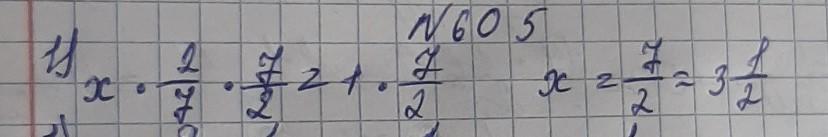 N 605
1) x · 2/7 · 7/2 = 1 · 7/2   x = 7/2 = 3 1/2